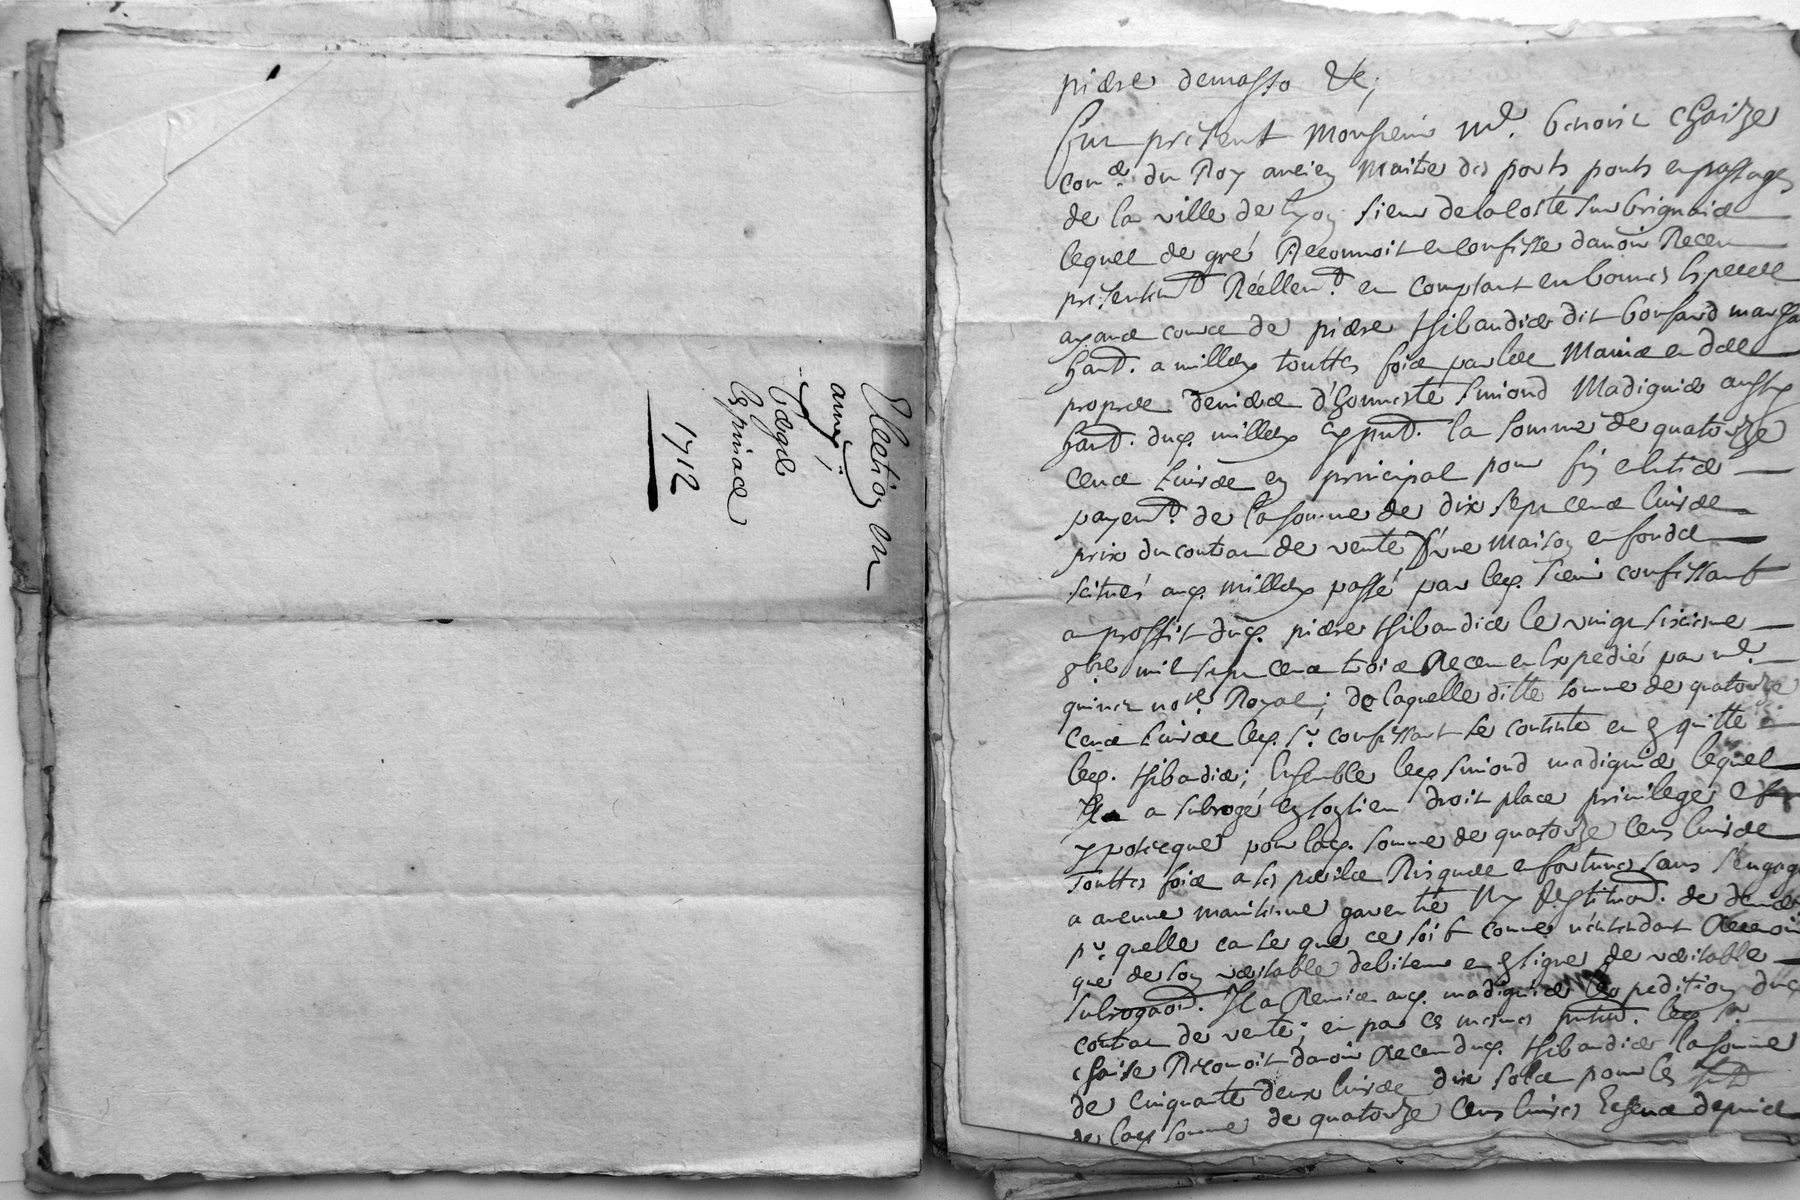 Election en
amy
Vergde
Espinace
1712
piere demasso &c;
fut present Monsieur me. benoist chaize
coner. du Roy ancien Maitre des ports ponts et passages
de la ville de Lyon sieur de la Coste sur brignais
lequel de gré Reconnoit et confesse d'avoir Receu
presentemt. Réellemt. et comptant en bonnes Especes
ayant cours de piere thibaudier dit bonfard marcha
hand. a millery touttes fois par les Mains et des
propres deniers d'honneste simond Madignier aussy
hand. dud. millery cy pnt. la somme de quatorze
cens Livres en principal pour fin et entier
payemt. de la somme de dix sept cens livres
prix du contrat de vente d'une Maison et fonds
scitués aud. millery passé par led. sieur confessant
au proffit dud. piere thibaudier le vingt sixieme
8bre mil sept cens trois Receu et Expedié par me.
guinet nore. Royal; de laquelle ditte somme de quatorze
cens Livres led. sr. confessant se contente et en quitte
led. thibaudier; Ensemble led. simond madignier lequel
Il a subrogé en son lieu droit place privilege et
ypotecque pour lad. somme de quatorze cens livres
Touttes fois a ses perils Risques et fortunes sans s'engage
a aucune maintenue garentie Ny Restitution. de deniers
pr. quelle cause que ce soit comme n'entendant
que de son veritable debiteur et en signe de veritable
subrogaon. Il a Remis aud. madignier l'expedition dud.
contrat de vente; et par ces mesmes pntes. led. sr.
chaise Reconoit d'avoir Receu dud. thibaudier la somme
de cinquante deux livres dix sols pour les
de lad. somme de quatorze cens livres Echeus depuis